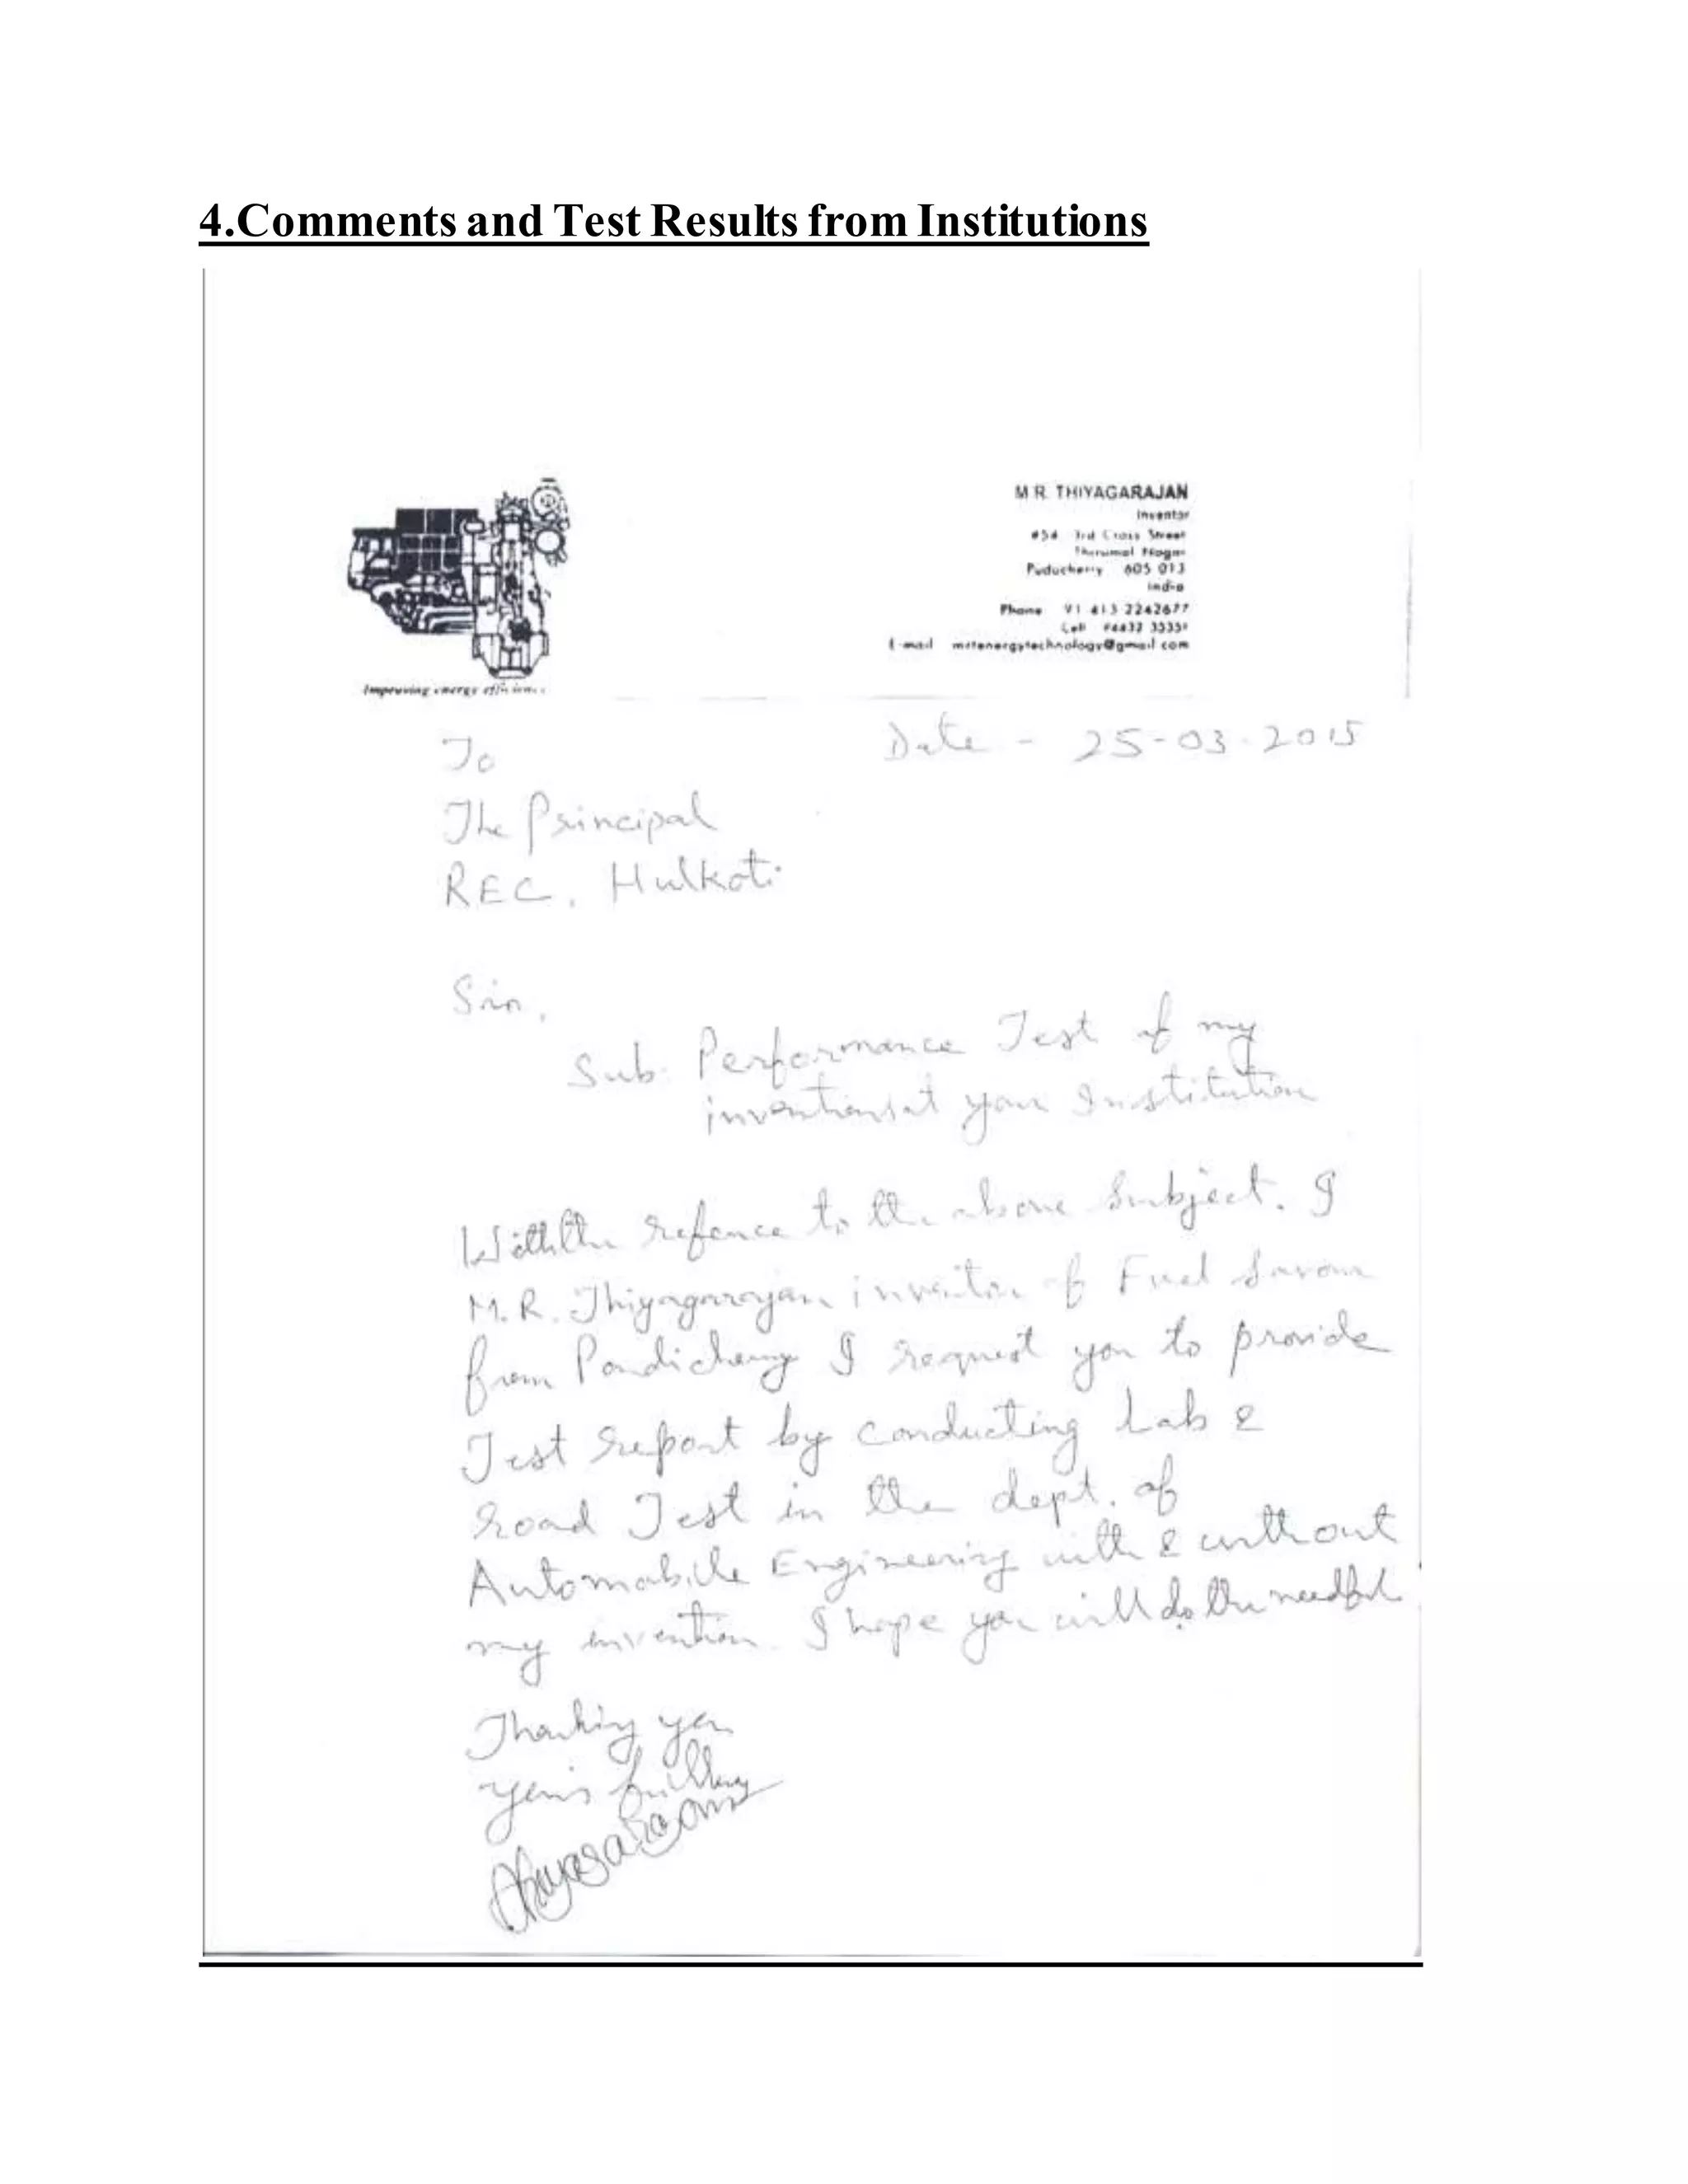 4.Comments and Test Results from Institutions
M R. THIYAGARAJAN
Inventor
#54 3rd Cross Street
Thirumal Nagar
Puducherry 605 013
India
Phone 91 413 2242677
Cell
E-mail mrtenergytechnology@gmail com
Improving energy efficiency
Date - 25-03-2015
To
The Principal
REC, Hulkoti
Sir,
Sub: Performance Test of my
invention at your Institution
With the refence to the above Subject. I
M.R. Thiyagarajan inventor of Fuel Savour
from Pondicherry I request you to provide
Test report by conducting Lab &
road Test in the dept. of
Automobile Engineering with & without
my invention. I hope you will do the needful.
Thanking you
Thiyagarajan